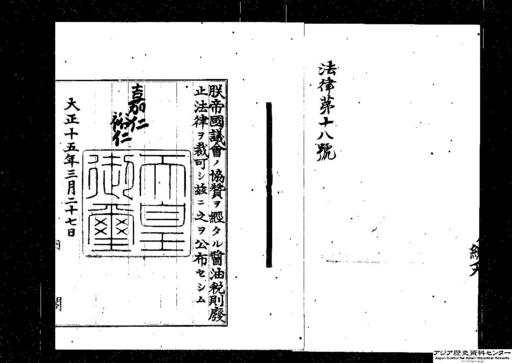 法律第十八號
朕帝國議會ノ協賛ヲ經タル醤油税則廢
止法律ヲ裁可シ茲ニ之ヲ公布セシム
嘉仁
裕仁
天皇
御璽
大正十五年三月二十七日
内閣
アジア歴史資料センター
Japan Center for Asian Historical Records